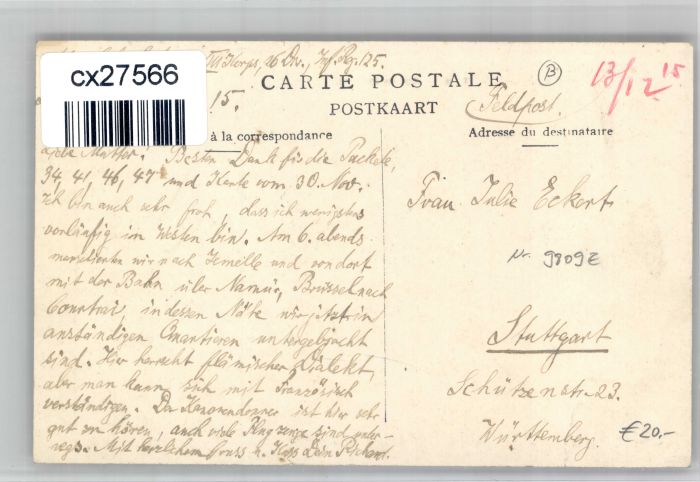 III Korps, 26 Div., Inf. Rg. 125.
cx27566
B
13/12 15
CARTE POSTALE
15.
POSTKAART
Feldpost.
à la correspondance
Adresse du destinataire
Liebe Mutter! Besten Dank für die Packete,
34, 41, 46, 47 und Karte vom 30. Nov.
Ich bin auch sehr froh, dass ich wenigstens
vorläufig im Westen bin. Am 6. abends
marschierten wir nach Jemelle und von dort
mit der Bahn über Namur, Brüssel nach
Courtrai, in dessen Nähe wir jetzt in
anständigen Quartieren untergebracht
sind. Hier herrscht flämischer Dialekt,
aber man kann sich mit Französisch
verständigen. Der Kanonendonner ist hier sehr
gut zu hören, auch viele Flugzeuge sind unter-
wegs. Mit herzlichem Gruss u. Kuss Dein Richard.
Frau Julie Eckert
Nr. 9809Z
Stuttgart
Schützenstr. 23.
Württemberg.
€20,-